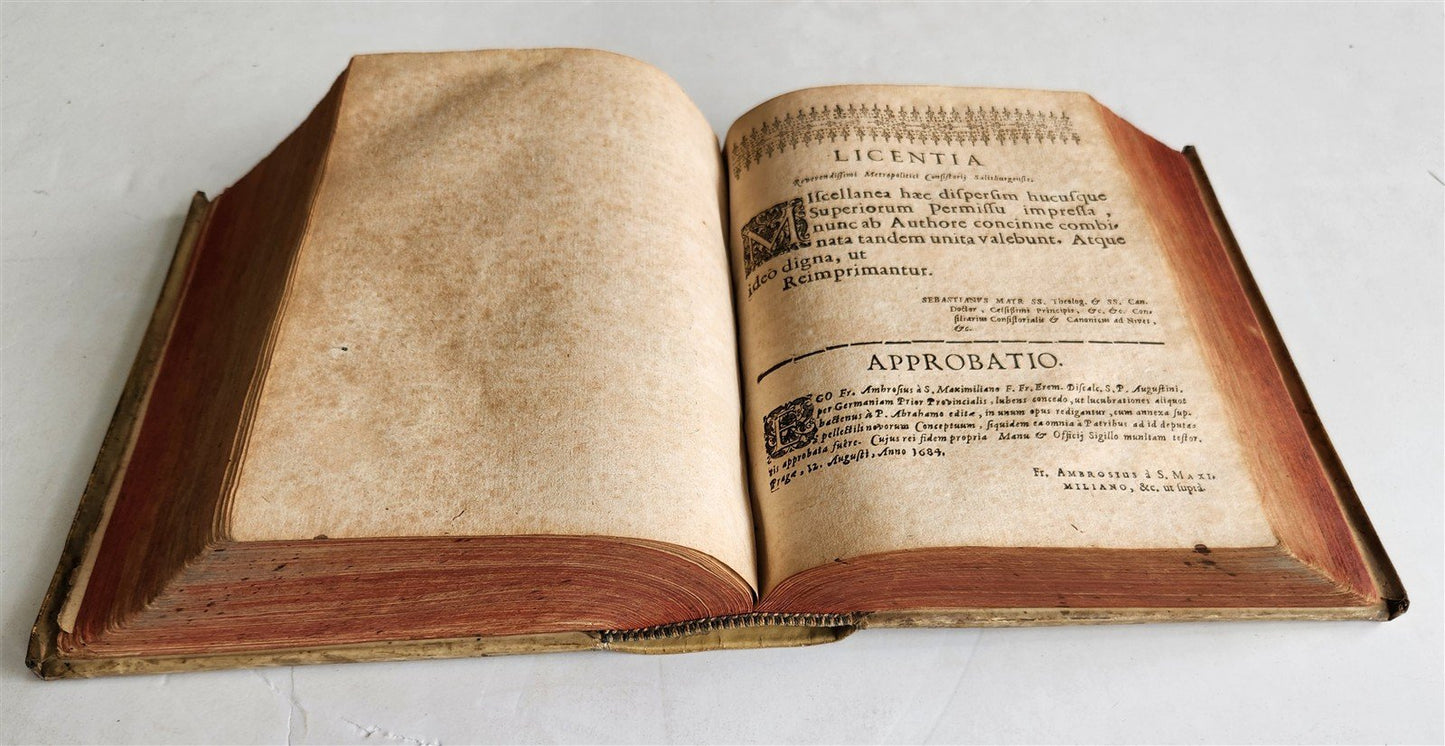 LICENTIA
Reverendissimi Metropolitici Consistorij Salisburgensis.
MIscellanea hæc dispersim hucusque
Superiorum Permissu impressa,
nunc ab Authore concinne combi-
nata tandem unita valebunt. Atque
ideò digna, ut
Reimprimantur.
SEBASTIANUS MAYR SS. Theolog. & SS. Can.
Doctor, Celsissimi Principis, &c. &c. Con-
siliarius Consistorialis & Canonicus ad Nives,
&c.
APPROBATIO.
EGO Fr. Ambrosius à S. Maximiliano F. Fr. Erem. Discalc. S. P. Augustini,
per Germaniam Prior Provincialis, lubens concedo, ut lucubrationes aliquot
hactenus à P. Abrahamo editæ, in unum opus redigantur, cum annexa sup-
pellectili novorum Conceptuum, siquidem ea omnia à Patribus ad id deputa-
tis approbata fuêre. Cujus rei fidem propria Manu & Officij Sigillo munitam testor.
Pragæ, 12. Augusti, Anno 1684.
Fr. AMBROSIUS à S. MAXI-
MILIANO, &c. ut suprà.